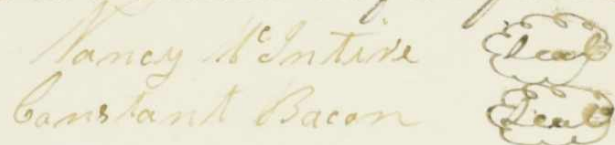 Nancy McIntire Seal
Constant Bacon Seal